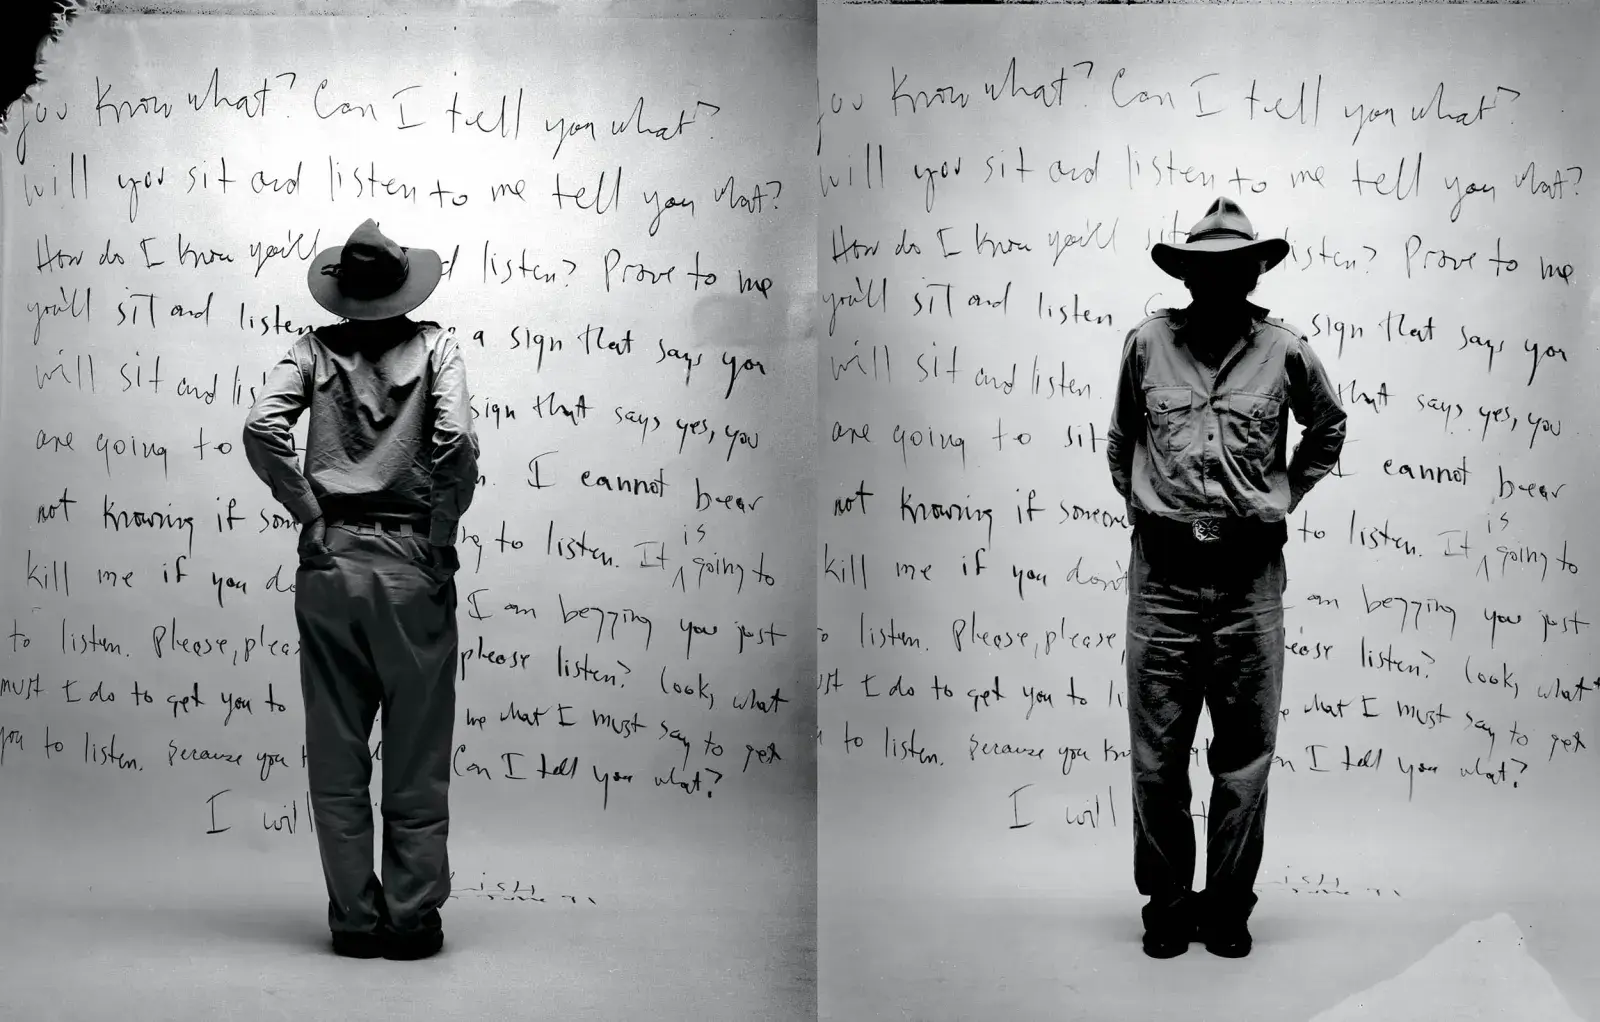 you know what? Can I tell you what?
will you sit and listen to me tell you what?
How do I know you'll d listen? Prove to me
you'll sit and listen a sign that says you
will sit and lis sign that says yes, you
are going to n. I cannot bear
not knowing if some ng to listen. It is going to
kill me if you do I am begging you just
to listen. Please, pleas please listen? Look, what
must I do to get you to me what I must say to get
you to listen. Because you k Can I tell you what?
I will
ou know what? Can I tell you what?
will you sit and listen to me tell you what?
How do I know you'll sit listen? Prove to me
you'll sit and listen. sign that says you
will sit and listen. that says yes, you
are going to sit I cannot bear
not knowing if someone to listen. It is going to
kill me if you don't am begging you just
o listen. Please, please, ease listen? Look, what
ust I do to get you to li e what I must say to get
u to listen. Because you kno an I tell you what?
I will